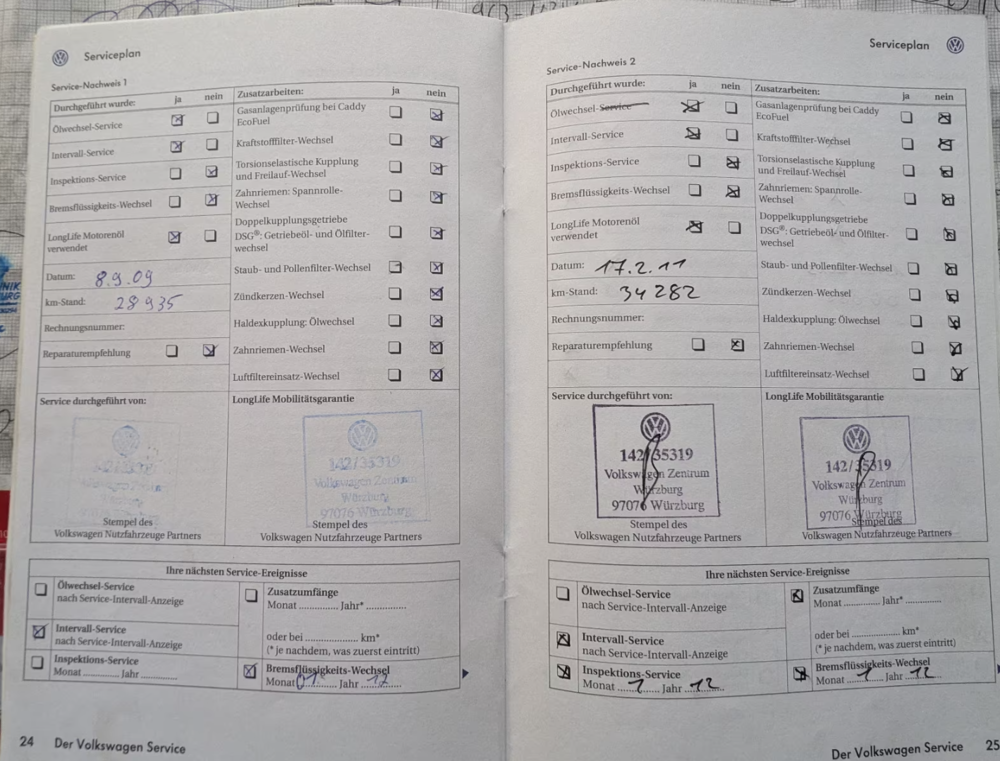 Serviceplan
Service-Nachweis 1
Durchgeführt wurde: ja nein
Ölwechsel-Service
Intervall-Service
Inspektions-Service
Bremsflüssigkeits-Wechsel
LongLife Motorenöl
verwendet
Datum: 8.9.09
km-Stand: 28935
Rechnungsnummer:
Reparaturempfehlung
Zusatzarbeiten: ja nein
Gasanlagenprüfung bei Caddy
EcoFuel
Kraftstofffilter-Wechsel
Torsionselastische Kupplung
und Freilauf-Wechsel
Zahnriemen: Spannrolle-
Wechsel
Doppelkupplungsgetriebe
DSG®: Getriebeöl- und Ölfilter-
wechsel
Staub- und Pollenfilter-Wechsel
Zündkerzen-Wechsel
Haldexkupplung: Ölwechsel
Zahnriemen-Wechsel
Luftfiltereinsatz-Wechsel
Service durchgeführt von:
Stempel des
Volkswagen Nutzfahrzeuge Partners
LongLife Mobilitätsgarantie
142/35319
Volkswagen Zentrum
Würzburg
97076 Würzburg
Stempel des
Volkswagen Nutzfahrzeuge Partners
Ihre nächsten Service-Ereignisse
Ölwechsel-Service
nach Service-Intervall-Anzeige
Intervall-Service
nach Service-Intervall-Anzeige
Inspektions-Service
Monat ............ Jahr ............
Zusatzumfänge
Monat ............ Jahr* ............
oder bei .................... km*
(* je nachdem, was zuerst eintritt)
Bremsflüssigkeits-Wechsel
Monat 01 Jahr 12
24 Der Volkswagen Service
Serviceplan
Service-Nachweis 2
Durchgeführt wurde: ja nein
Ölwechsel-Service
Intervall-Service
Inspektions-Service
Bremsflüssigkeits-Wechsel
LongLife Motorenöl
verwendet
Datum: 17.2.11
km-Stand: 34282
Rechnungsnummer:
Reparaturempfehlung
Zusatzarbeiten: ja nein
Gasanlagenprüfung bei Caddy
EcoFuel
Kraftstofffilter-Wechsel
Torsionselastische Kupplung
und Freilauf-Wechsel
Zahnriemen: Spannrolle-
Wechsel
Doppelkupplungsgetriebe
DSG®: Getriebeöl- und Ölfilter-
wechsel
Staub- und Pollenfilter-Wechsel
Zündkerzen-Wechsel
Haldexkupplung: Ölwechsel
Zahnriemen-Wechsel
Luftfiltereinsatz-Wechsel
Service durchgeführt von:
142/35319
Volkswagen Zentrum
Würzburg
97076 Würzburg
Stempel des
Volkswagen Nutzfahrzeuge Partners
LongLife Mobilitätsgarantie
142/35319
Volkswagen Zentrum
Würzburg
97076 Würzburg
Stempel des
Volkswagen Nutzfahrzeuge Partners
Ihre nächsten Service-Ereignisse
Ölwechsel-Service
nach Service-Intervall-Anzeige
Intervall-Service
nach Service-Intervall-Anzeige
Inspektions-Service
Monat 1 Jahr 12
Zusatzumfänge
Monat ............ Jahr* ............
oder bei .................... km*
(* je nachdem, was zuerst eintritt)
Bremsflüssigkeits-Wechsel
Monat 1 Jahr 12
Der Volkswagen Service 25